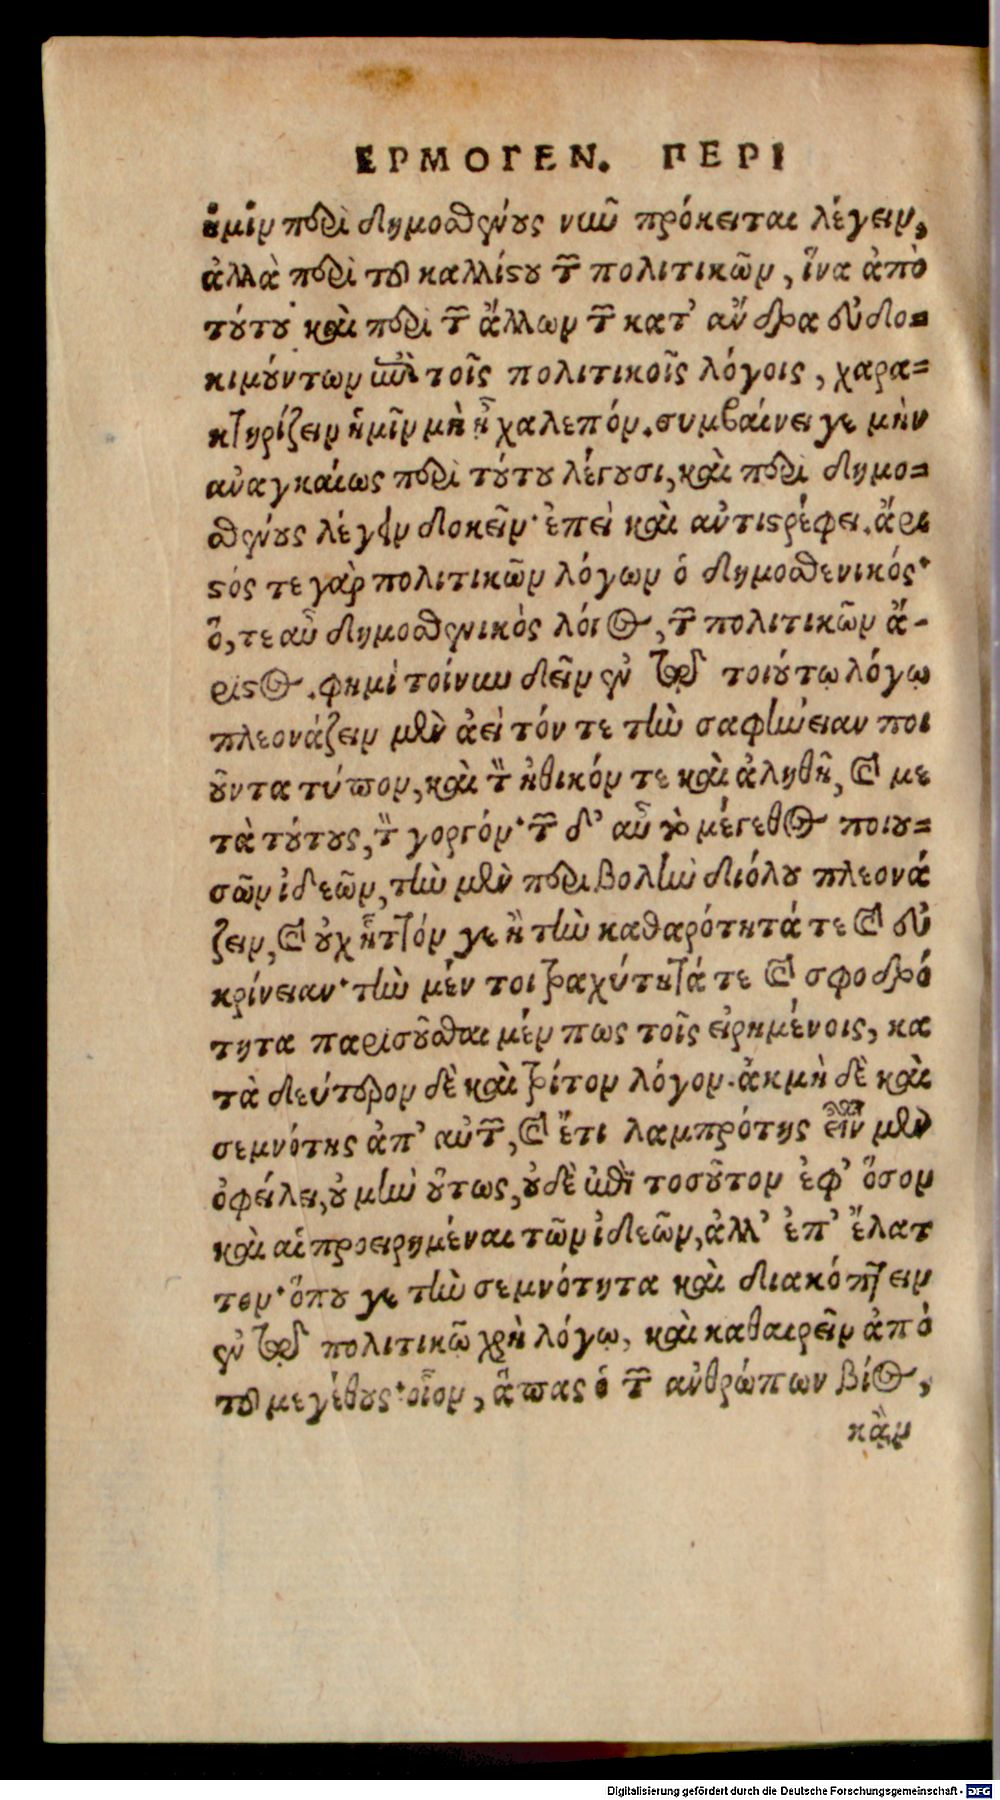 ΕΡΜΟΓΕΝ. ΠΕΡΙ
ἡμῖν περὶ δημοσθένους νῦν πρόκειται λέγειν,
ἀλλὰ περὶ τοῦ καλλίστου τῶν πολιτικῶν, ἵνα ἀπὸ
τούτου καὶ περὶ τῶν ἄλλων τῶν κατ' ἄνδρα εὐδο=
κιμούντων ἐν τοῖς πολιτικοῖς λόγοις, χαρα=
κτηρίζειν ἡμῖν μὴ ᾖ χαλεπόν. συμβαίνει γε μὴν
ἀναγκαίως περὶ τούτου λέγουσι, καὶ περὶ δημο=
σθένους λέγειν δοκεῖν· ἐπεὶ καὶ ἀντιστρέφει. ἄρι
στός τε γὰρ πολιτικῶν λόγων ὁ δημοσθενικός·
ὅ, τε αὖ δημοσθενικὸς λόγος, τῶν πολιτικῶν ἄ-
ριστος. φημὶ τοίνυν δεῖν ἐν τῷ τοιούτῳ λόγῳ
πλεονάζειν μὲν ἀεὶ τόν τε τὴν σαφήνειαν ποι
οῦντα τύπον, καὶ τὸν ἠθικόν τε καὶ ἀληθῆ, καὶ με
τὰ τούτους, τὸν γοργόν· τῶν δ' αὖ τὸ μέγεθος ποιου=
σῶν ἰδεῶν, τὴν μὲν περιβολὴν διόλου πλεονά
ζειν, καὶ οὐχ ἧττόν γε ἢ τὴν καθαρότητά τε καὶ εὐ
κρίνειαν· τὴν μέν τοι τραχύτητά τε καὶ σφοδρό
τητα παρισοῦσθαι μέν πως τοῖς εἰρημένοις, κα
τὰ δεύτερον δὲ καὶ τρίτον λόγον. ἀκμὴ δὲ καὶ
σεμνότης ἀπ' αὐτῶν, καὶ ἔτι λαμπρότης εἶναι μὲν
ὀφείλει, οὐ μὴν οὕτως, οὐδὲ ἐπὶ τοσοῦτον ἐφ' ὅσον
καὶ αἱ προειρημέναι τῶν ἰδεῶν, ἀλλ' ἐπ' ἔλατ
τον· ὅπου γε τὴν σεμνότητα καὶ διακόπτειν
ἐν τῷ πολιτικῷ χρὴ λόγῳ, καὶ καθαιρεῖν ἀπὸ
τοῦ μεγέθους· οἷον, ἅπας ὁ τῶν ἀνθρώπων βίος,
κἂν
Digitalisierung gefördert durch die Deutsche Forschungsgemeinschaft - DFG